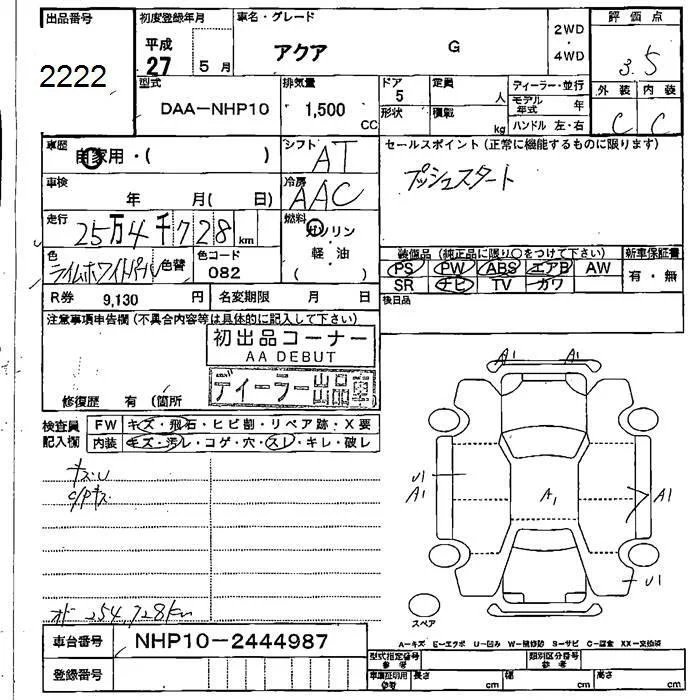 出品番号 初度登録年月 車名・グレード 2WD 評価点
平成 ・
2222 27 5月 アクア G 4WD 3.5
型式 排気量 ドア 定員 ディーラー・並行 外装 内装
DAA−NHP10 1,500 5 人 モデル年式 年
CC 形状 積載 kg ハンドル 左・右 C C
車歴 自家用・( ) シフト AT セールスポイント(正常に機能するものに限ります)
車検 年 月( 日) 冷房 AAC プッシュスタート
走行 25万4千728km 燃料 ガソリン
軽油
( )
色 ライムホワイトパール 色替 色コード 082
装備品(純正品に限り○をつけて下さい) 新車保証書
PS PW ABS エアB AW 有・無
SR ナビ TV カワ
R券 9,130 円 名変期限 月 日 後日品
注意事項申告欄(不具合内容等は具体的に記入して下さい)
初出品コーナー
AA DEBUT
ディーラー出品車
修復歴 有(箇所
検査員記入欄 FW キズ・飛石・ヒビ割・リペア跡・X要
内装 キズ・汚レ・コゲ・穴・スレ・キレ・破レ
A1 A1
U1
A1 A1 A1
U1
スペア
オド 254,728km
A−キズ E−エクボ U−凹み W−補修跡 S−サビ C−腐食 XX−交換済
車台番号 NHP10−2444987
型式指定番号 参考 類別区分番号 参考
登録番号 長さ cm 幅 cm 高さ cm